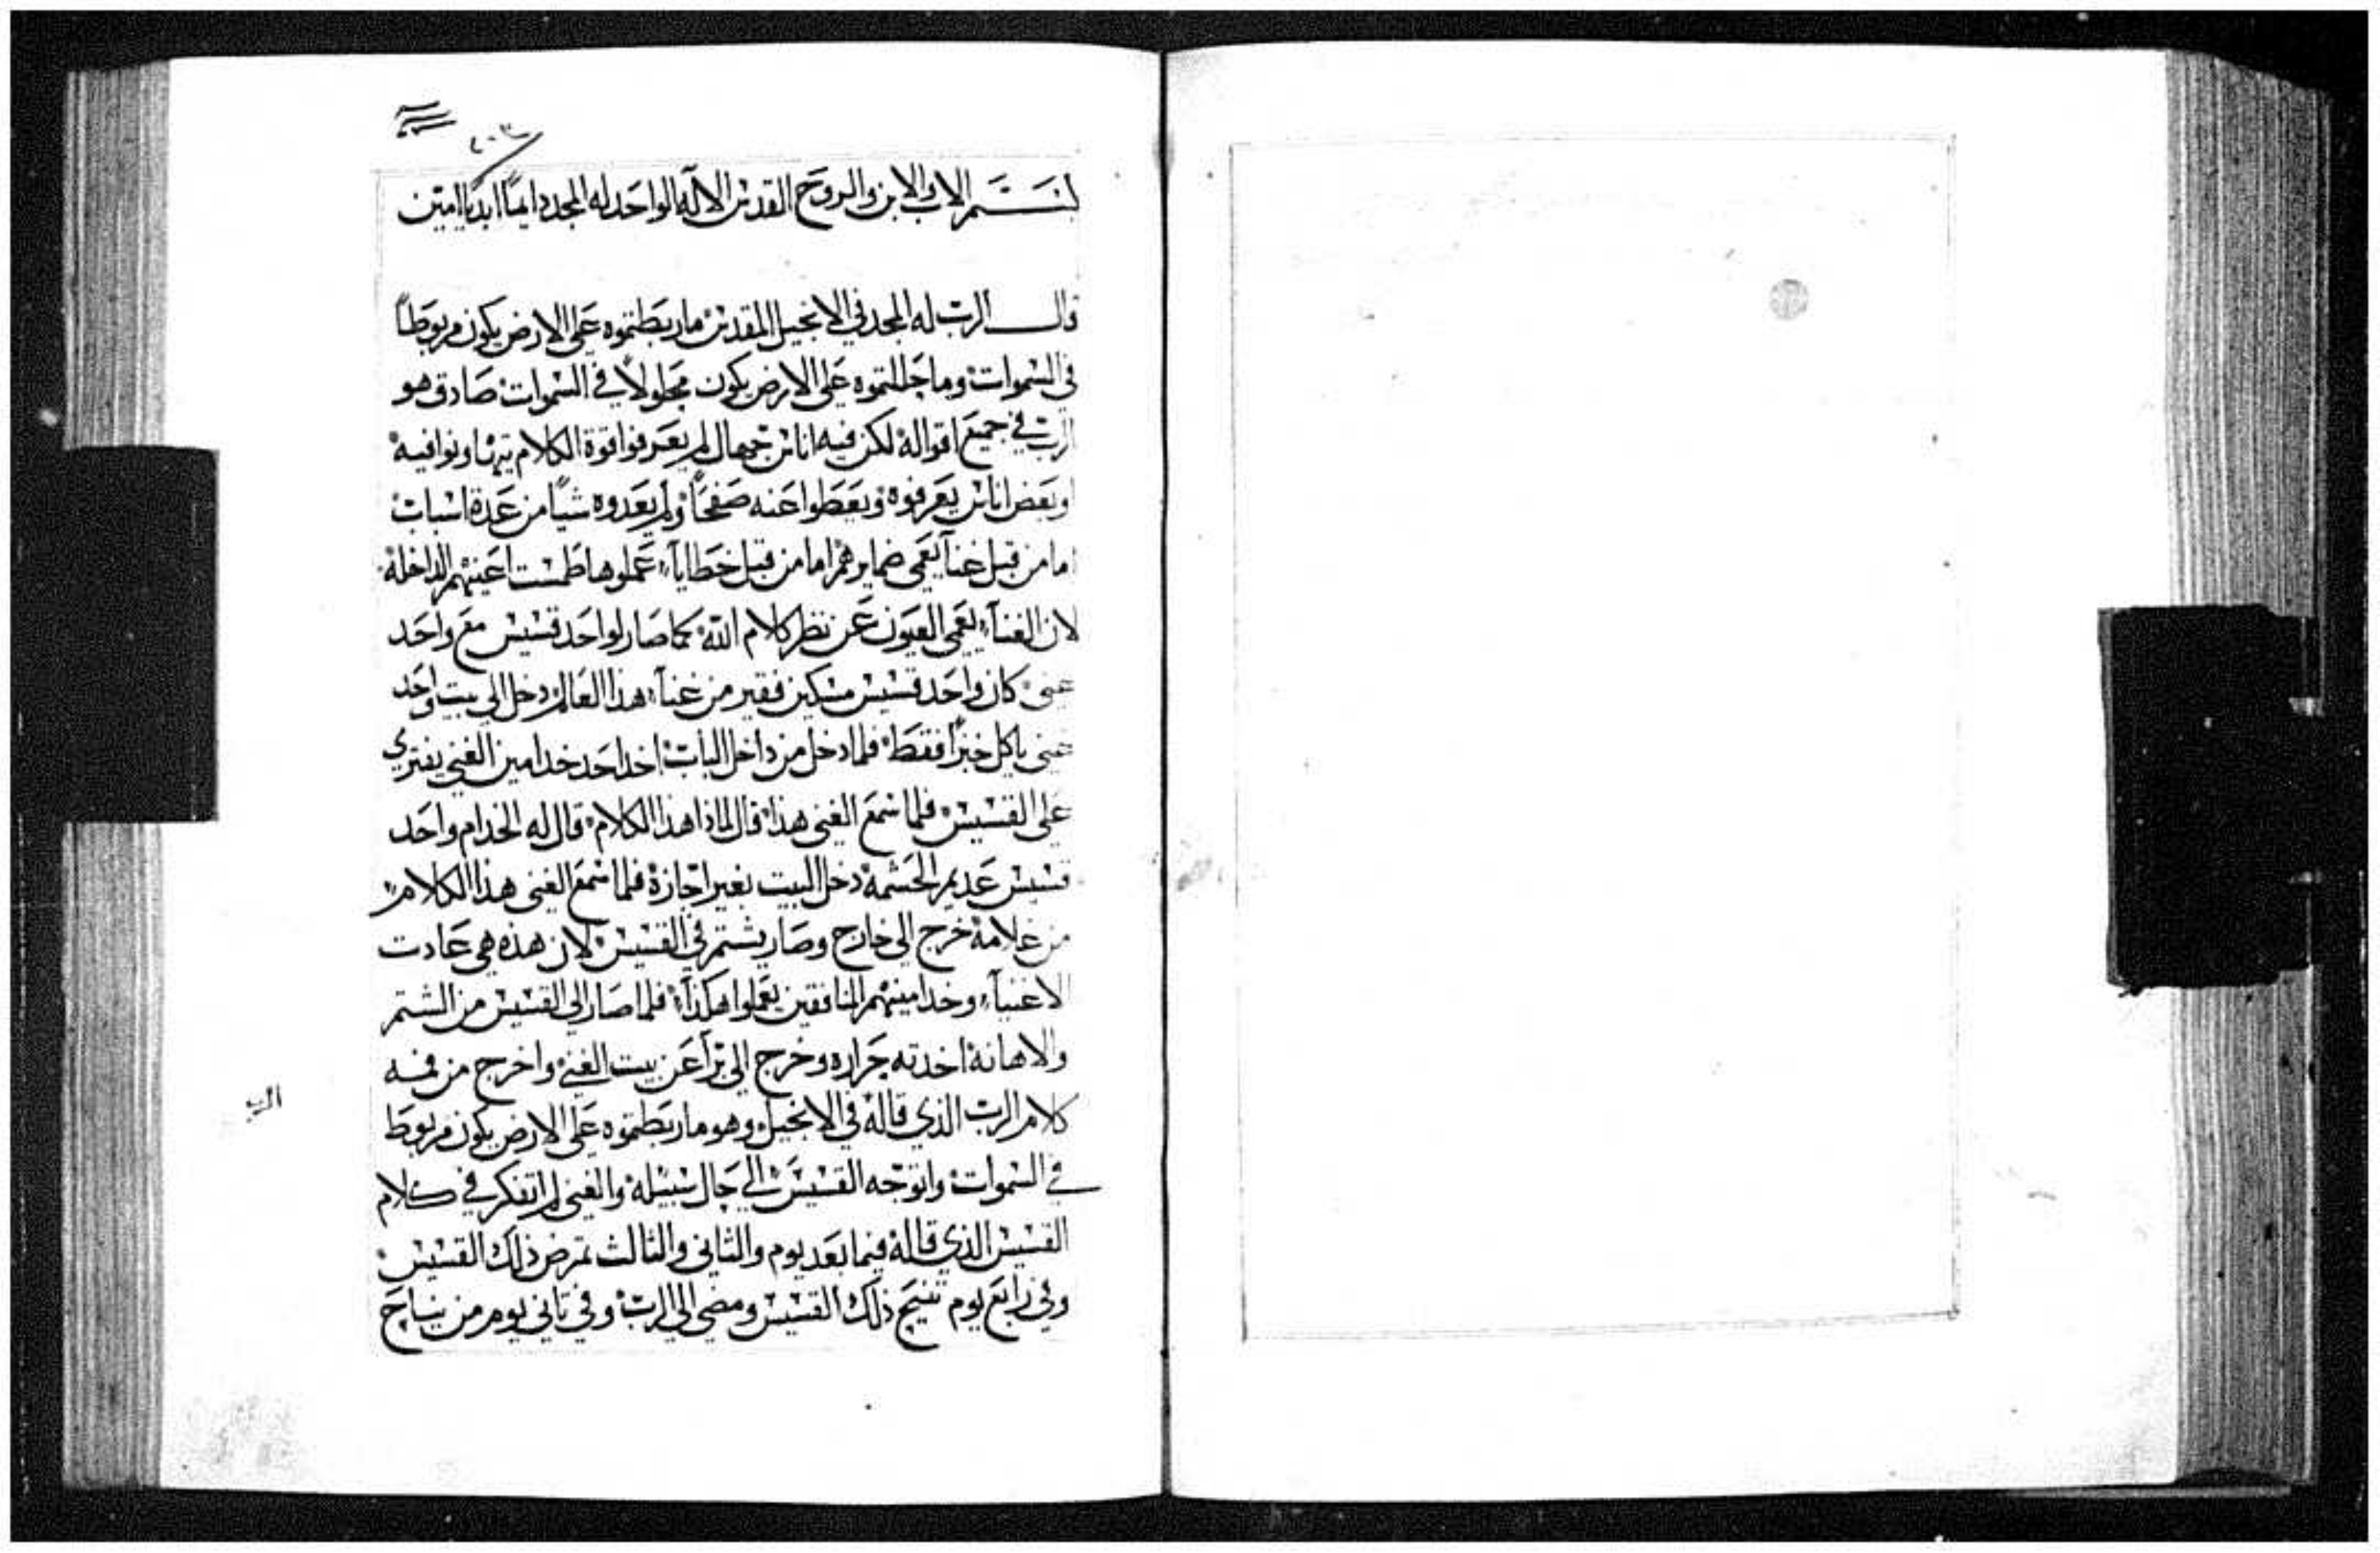 ٤٠٣
بسم الاب والابن والروح القدس الاله الواحد له المجد دايماً ابدياً امين
قال الرب له المجد في الانجيل المقدس ماربطتموه على الارض يكون مربوطاً
في السموات وما حللتموه على الارض يكون محلولاً في السموات صادق هو
الرب في جميع اقواله لكن فيه اناس جهال لم يعرفوا قوة الكلام يتهاونوا فيه
وبعض اناس يعرفوه ويعطوا عنه صفحاً ولم يعدوه شياً من عدة اسباب
اما من قبل غناً يعمي ضمايرهم اما من قبل خطاياً عملوها طمست اعينهم الداخلة
لان الغناء يعمي العيون عن نظر كلام الله كما صار لواحد قسيس مع واحد
غنى كان واحد قسيس مسكين فقير من غناء هذا العالم دخل الى بيت واحد
غنى ياكل خبزاً فقط فلما دخل من داخل الباب اخد احد خدامين الغني يفتري
على القسيس فلما سمع الغنى هذا قال لماذا هذا الكلام قال له الخدام واحد
قسيس عديم الحشمة دخل البيت بغير اجازة فلما سمع الغنى هذا الكلام
من غلامه خرج الى خارج وصار يشتم في القسيس لان هذه هي عادت
الاغنياء وخدامينهم المنافقين يعملوا هكذا فلما صار الى القسيس من الشتم
والاهانة اخدته جراره وخرج الى براً عن بيت الغني واخرج من فمه
كلام الرب الذي قاله في الانجيل وهو ماربطتموه على الارض يكون مربوط
في السموات واتوجه القسيس الى حال سبيله والغنى لم اتفكر في كلام
القسيس الذي قاله فيما بعد يوم والثاني والثالث تمرض ذلك القسيس
وفي رابع يوم تنيح ذلك القسيس ومضي الى الرب وفي تاني يوم من نياح